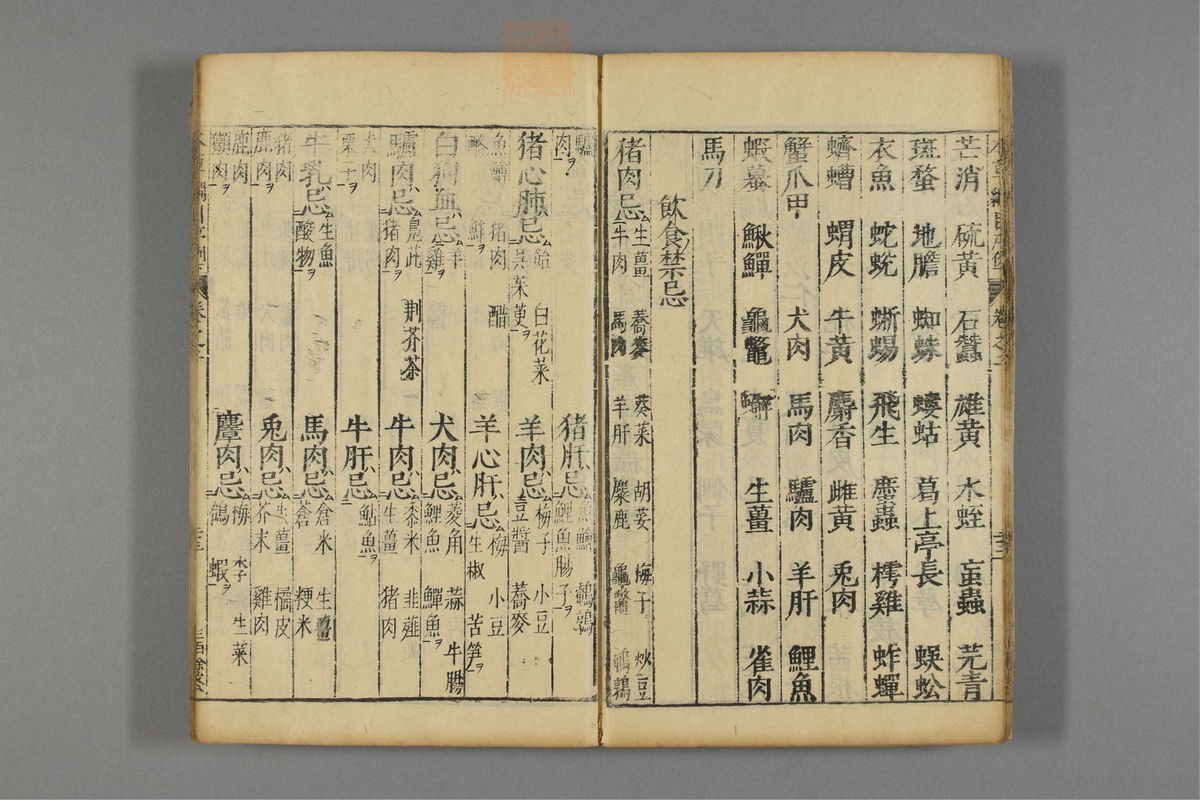 芒消 硫黃 石蠶 雄黃 水蛭 䖟蟲 芫青
斑蝥 地膽 蜘蛛 螻蛄 葛上亭長 蜈蚣
衣魚 蛇蛻 蜥蜴 飛生 䗪蟲 樗雞 蚱蟬
蠐螬 蝟皮 牛黃 麝香 雌黃 兔肉
蟹爪甲 犬肉 馬肉 驢肉 羊肝 鯉魚
蝦蟇 鰍鱓 龜鼈 生薑 小蒜 雀肉
馬刀
飲食禁忌
猪肉忌 生薑 蕎麥 葵菜 胡荽 梅子 炒豆
牛肉 馬肉 羊肝 麋鹿 龜鼈 鵪鶉
驢肉 猪肝忌 魚鱠 鵪鶉
鯉魚腸子
猪心肺忌 飴 白花菜
吳茱萸 羊肉忌 梅子 小豆
豆醬 蕎麥
魚鱠 猪肉 醋
酪 鮓 羊心肝忌 梅 小豆
生椒 苦笋
白狗血忌 羊
雞 犬肉忌 菱角 蒜 牛腸
鯉魚 鱓魚
驢肉忌 鳧茈 荆芥茶
猪肉 牛肉忌 黍米 韭薤
生薑 猪肉
犬肉
栗子 牛肝忌 鮎魚
牛乳忌 生魚
酸物 馬肉忌 倉米 生薑
蒼 粳米
猪肉
鹿肉 兔肉忌 生薑 橘皮
芥末 雞肉
鹿肉
獺肉 麞肉忌 梅李 生菜
鴿 蝦